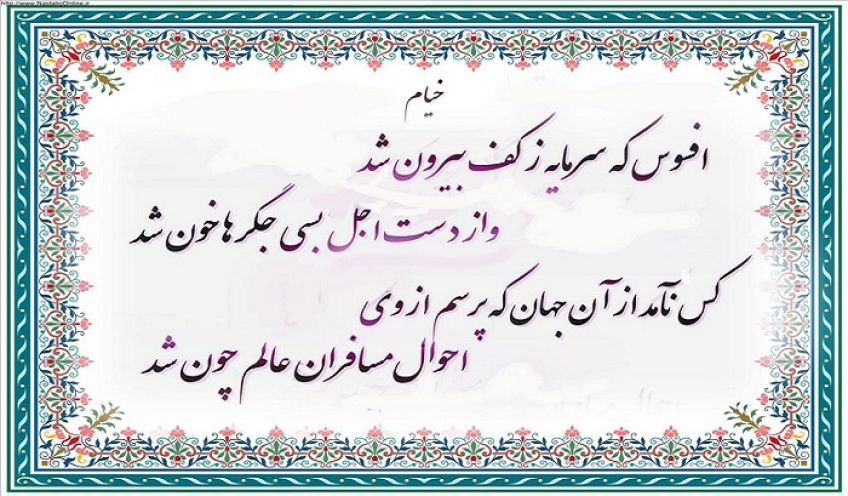 http://www.NastaliqOnline.ir
خیام
افسوس که سرمایه ز کف بیرون شد
واز دست اجل بسی جگرها خون شد
کس نآمد از آن جهان که پرسم از وی
احوال مسافران عالم چون شد